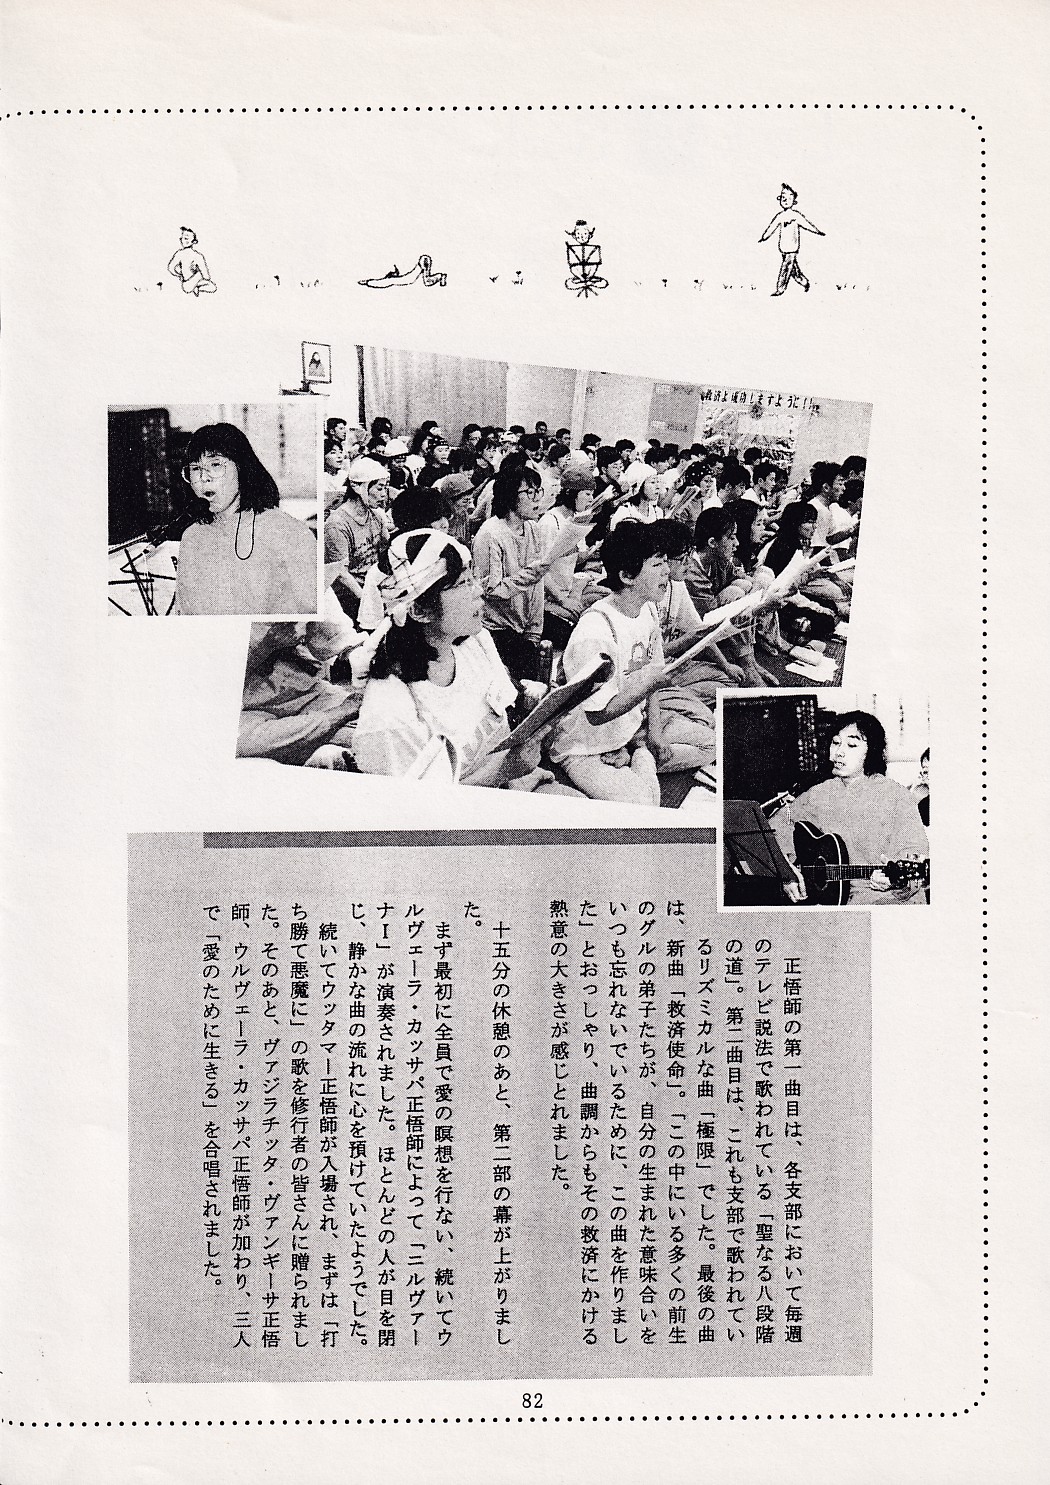 救済よ成功しますように!!
正悟師の第一曲目は、各支部において毎週
のテレビ説法で歌われている「聖なる八段階
の道」。第二曲目は、これも支部で歌われてい
るリズミカルな曲「極限」でした。最後の曲
は、新曲「救済使命」。「この中にいる多くの前生
のグルの弟子たちが、自分の生まれた意味合いを
いつも忘れないでいるために、この曲を作りまし
た」とおっしゃり、曲調からもその救済にかける
熱意の大きさが感じとれました。
十五分の休憩のあと、第二部の幕が上がりまし
た。
まず最初に全員で愛の瞑想を行ない、続いてウ
ルヴェーラ・カッサパ正悟師によって「ニルヴァー
ナⅠ」が演奏されました。ほとんどの人が目を閉
じ、静かな曲の流れに心を預けていたようでした。
続いてウッタマー正悟師が入場され、まずは「打
ち勝て悪魔に」の歌を修行者の皆さんに贈られまし
た。そのあと、ヴァジラチッタ・ヴァンギーサ正悟
師、ウルヴェーラ・カッサパ正悟師が加わり、三人
で「愛のために生きる」を合唱されました。
82